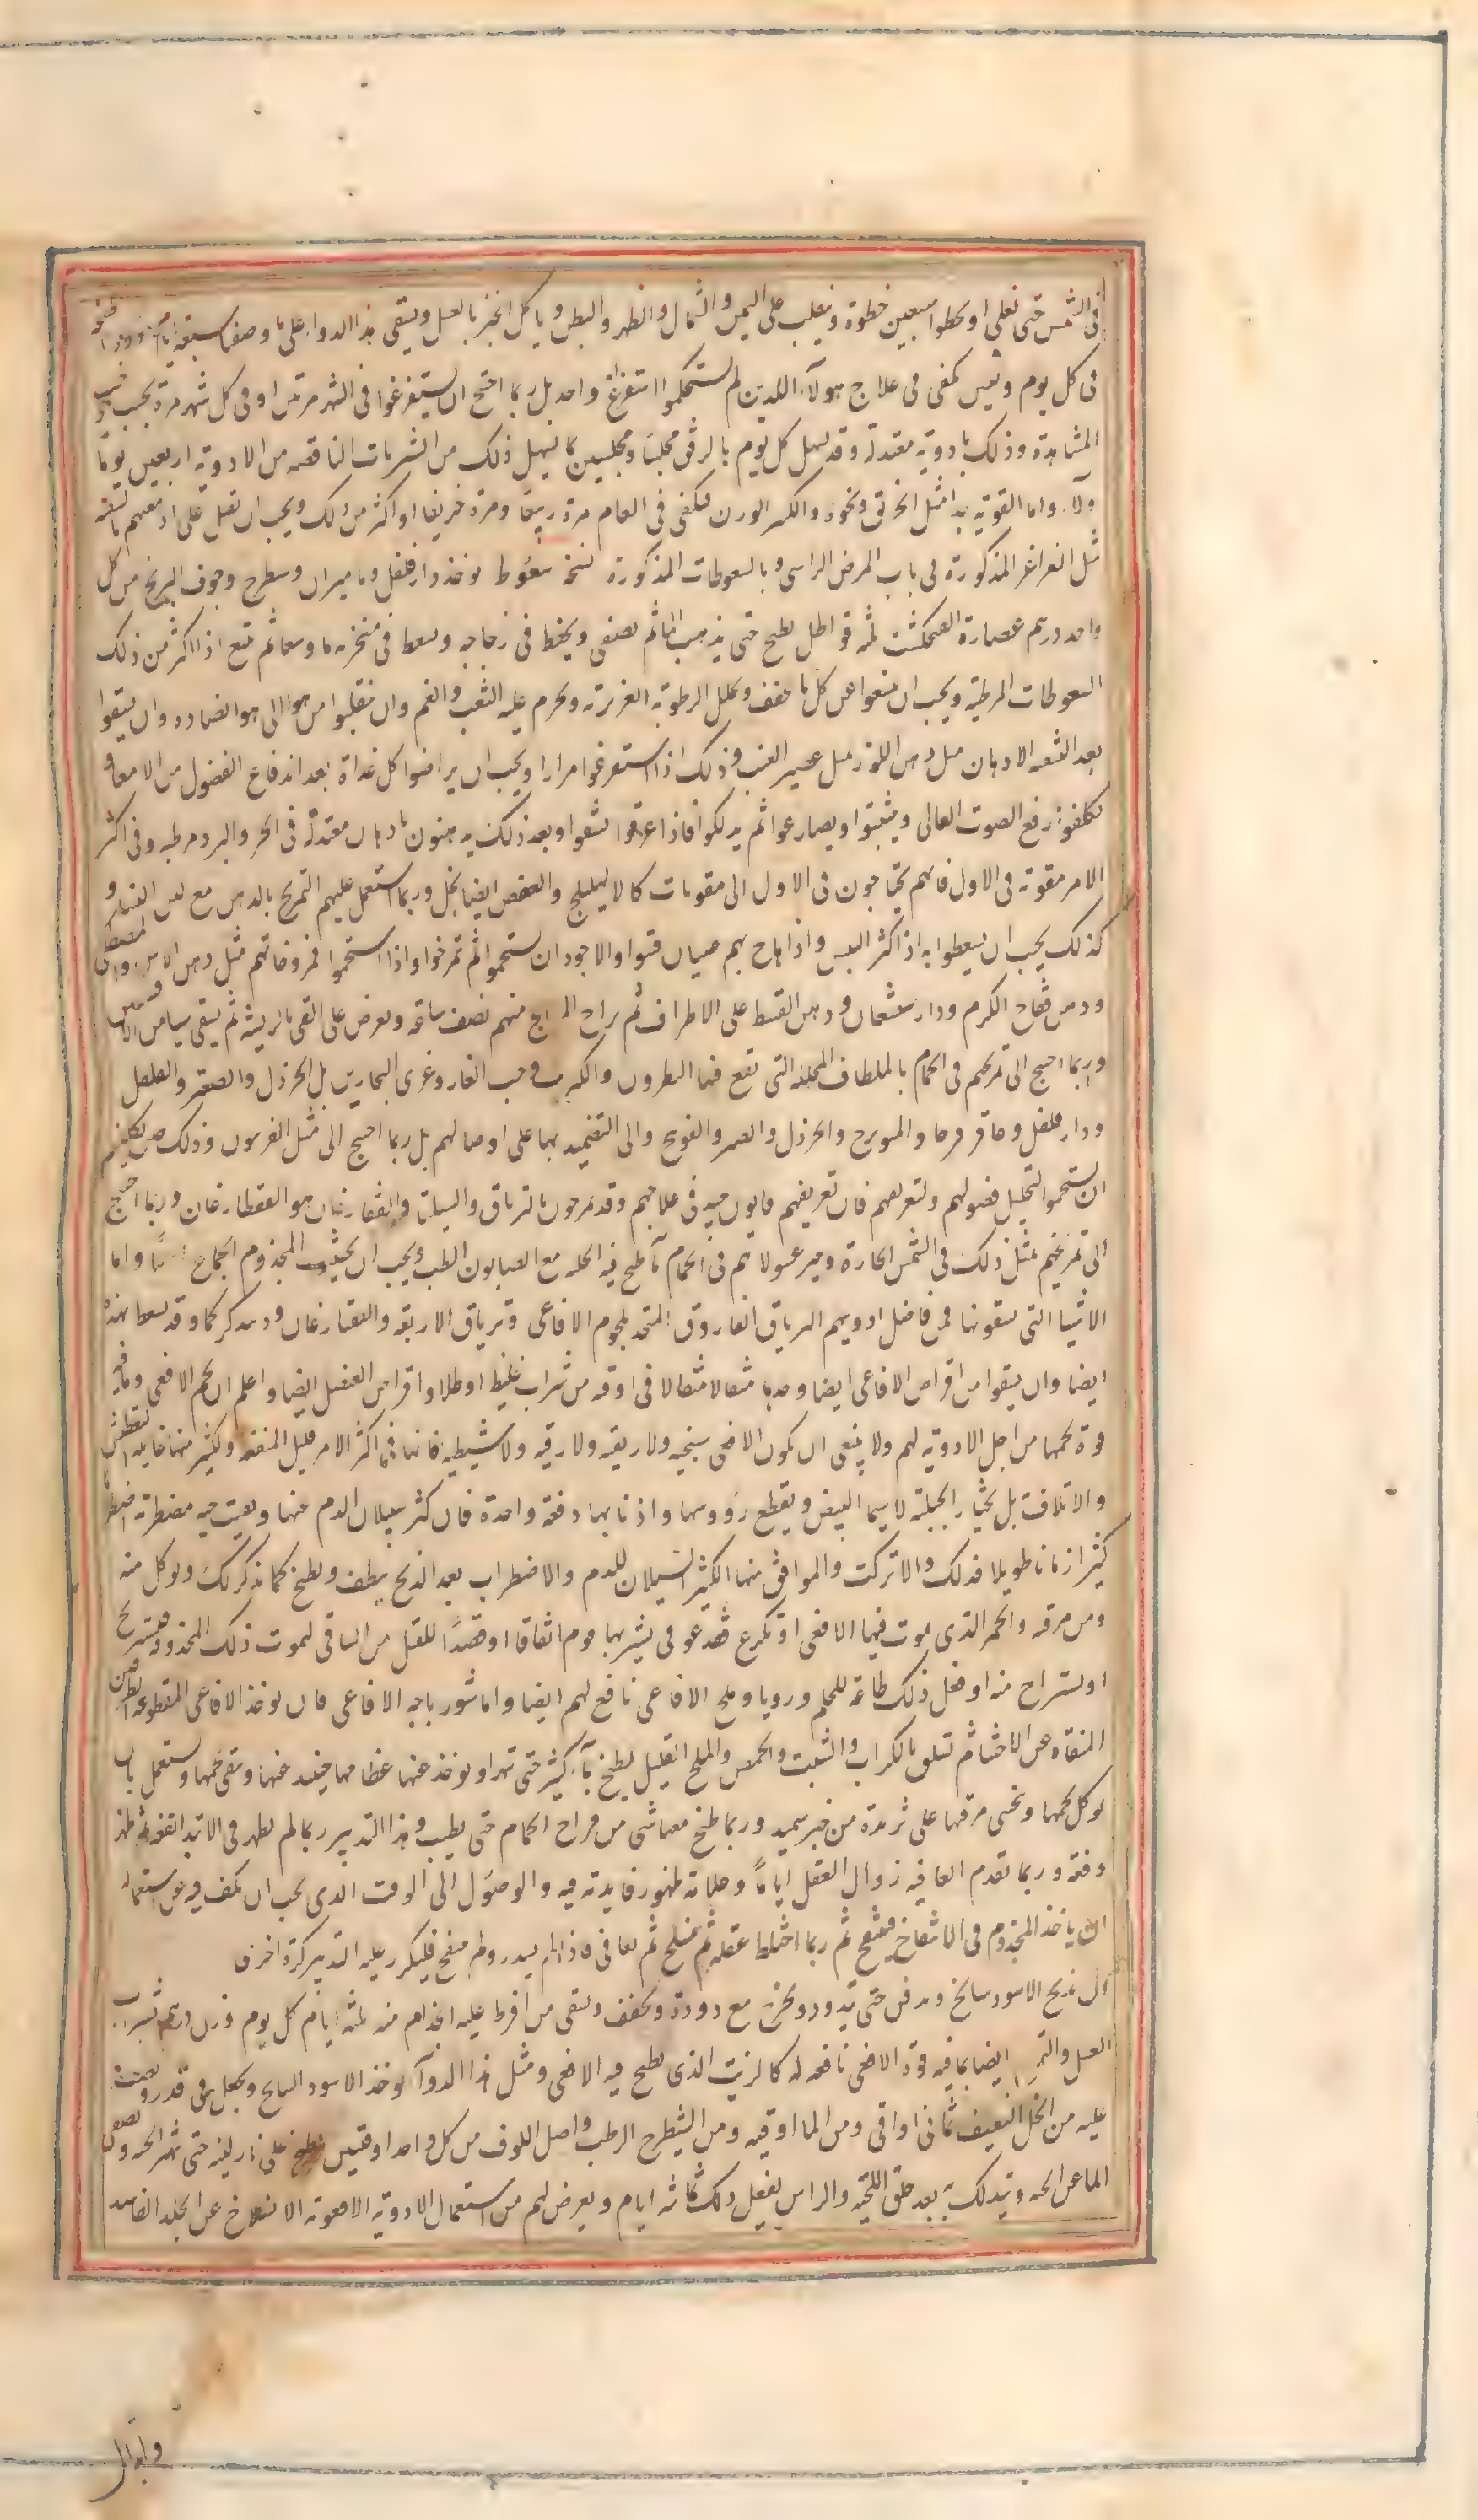 فى الشمس حتى نغلى او يخطوا سبعين خطوة وينقلب على اليمين والشمال والظهر والبطن وياكل الخبز بالعسل ويسقى هذا الدواء على ما وصفنا سبعة ايام
فى كل يوم وليس يكفى فى علاج هولآء اللذين لم تستحكموا استفراغ واحد بل ربما احتج ان يستفرغوا فى الشهر مرتين او فى كل شهر مرة بحسب
المشاهدة وذلك بادوية معتدلة وقد يسهل كل يوم بالرفق مجلسا ومجلسين بما يسهل ذلك من الشربات الناقصه من الادوية اربعين يوما
ولآء واما القوية جدا مثل الخربق ونحوه والكثير الوزن فيكفى فى العام مرة ربيعا ومرة خريفا او اكثر من ذلك ويجب ان تقبل على ادمغتهم بالتنقيه
مثل الغراغر المذكورة فى باب امراض الراس وبالسعوطات المذكورة نسخة سعوط يوخذ دار فلفل وماميران وشيطرج وجوف البرنج من كل
واحد درهم عصارة الفنجنكشت ثلثه قواطل يطبخ حتى يذهب الما ثم يصفى ويحفظ فى زجاجه ويسعط فى منخريه ما وسعا ثم تتبع اذا اكثر من ذلك
السعوطات المرطبة ويجب ان يمنعوا عن كل ما يجفف ويحلل الرطوبة الغريزية ويحرم عليه التعب والغم وان ينقلبوا من هوا الى هوا يضاده وان يسقوا
بعد التنقيه الادهان مثل دهن اللوز بمثل عصير العنب وذلك اذا استفرغوا مرارا ويجب ان يراضوا كل غداة بعد اندفاع الفضول من الامعا و
يكلفون رفع الصوت العالى ويثبتوا ويصارعوا ثم يدلكوا فاذا عرقوا نشفوا وبعد ذلك يدهنون بادهان معتدلة فى الحر والبرد مرطبه وفى اكثر
الامر مقوية فى الاول فانهم يحتاجون فى الاول الى مقويات كالاهليلج والعفص ايضا بخل وربما استعمل عليهم التمريخ بالدهن مع لبن النساء و
كذلك يجب ان يسعطوا به اذا كثر اليبس واذا هاج بهم غثيان قيئوا والاجود ان يستحموا ثم تمرخوا واذا استحموا فمروخاتهم مثل دهن الاس والمصطكى
ودهن فقاح الكرم ودار شيشعان ودهن القسط على الاطراف ثم يراح المعالج منهم نصف ساعه ويعرض على القى بالريشه ثم يسقى شيا من الافسنتين
وربما احتيج الى تمريخهم فى الحمام بالملطفات المحلله التى تقع فيها البطرون والكبريت وحب الغار وغرى النجارين بل الخردل والصعتر والفلفل
ودار فلفل وعاقرقرحا والميويزج والخردل والصعتر والفونج والى التضميد بها على اوصالهم بل ربما احتيج الى مثل الفربيون وذلك حين يكلفونهم
ان يستحموا لتحليل فضولهم ولتعريقهم فان تعريقهم قانون جيد فى علاجهم وقد يمرخون بالترياق والسليثا والقفارغان هو القفطارغان وربما احتيج
الى تمريخهم بمثل ذلك فى الشمس الحارة وخير غسولاتهم فى الحمام ما طبخ فيه الحلبه مع الصابون الطيب ويجب ان يجتنب المجذوم الجماع اصلا واما
الاشيا التى يسقونها فمن فاضل ادويتهم الترياق الفاروق المتخذ بلحوم الافاعى وترياق الاربعة والقفارغان ودبيدكركما وقد يسعطا بهذه
ايضا وان يسقوا من اقراص الافاعى ايضا وحدها مثقالا مثقالا فى اوقيه من شراب غليظ او طلا واقراص العنصل ايضا واعلم ان لحم الافعى وما فيه
قوة لحمها من اجل الادوية لهم ولا ينبغى ان يكون الافعى سبخيه ولا ريفيه ولا رقيه ولا شطيه فانها فى اكثر الامر قليل المنفعه وكثير منها خاصيه التعطيش
والاتلاف بل يختار الجبلية لا سيما البيض ويقطع رؤوسها واذنابها دفعة واحدة فان كثر سيلان الدم عنها وبقيت حيه مضطربة اضطرابا
كثيرا زمانا طويلا فذلك والا تركت والموافق منها الكثير السيلان للدم والاضطراب بعد الذبح ينظف ويطبخ كما نذكر لك ويوكل منه
ومن مرقه والخمر الذى يموت فيها الافعى او تكرع فقد عوفى بشربها قوم اتفاقا او قصدا للقتل من الساقى ليموت ذلك المجذوم فيستريح
او يستراح منه او فعل ذلك طاعة للحلم ورويا وملح الافاعى نافع لهم ايضا واما شورباجه الافاعى فان يوخذ الافاعى المقطوعه الطرفين
المنقاه عن الاحشا ثم تسلق بالكراث والشبت والحمص والملح القليل يطبخ بمآء كثير حتى تهرا ويوخذ عنها عظامها حينيذ عنها وينقى لحمها ويستعمل بان
يوكل لحمها ويحسى مرقها على ثريدة من خبز سميد وربما طبخ معها شى من فراخ الحمام حتى يطيب وهذا التدبير ربما لم يظهر فى الابتدا نفعه ثم ظهر
دفعة وربما تقدم العافيه زوال العقل اياما وعلامة ظهور فايدته فيه والوصول الى الوقت الذى يجب ان يكف فيه عن استعماله
ان ياخذ المجذوم فى الانتفاخ فينتفخ ثم ربما اختلط عقله ثم ينسلخ ثم يعافى فاذا لم يسدر ولم ينتفخ فليكرر عليه التدبير كرة اخرى
ان يذبح الاسود سالخ ويدفن حتى يتدود ويخرج مع دودة ويجفف ويسقى من افرط عليه الجذام منه ثلثه ايام كل يوم وزن درهم بشراب
العسل والتمريخ ايضا بما فيه قوة الافعى نافعه له كالزيت الذى يطبخ فيه الافعى ومثل هذا الدوآء يوخذ الاسود السالخ ويجعل فى قدر ويصب
عليه من الخل الثقيف ثمانى اواقى ومن الما اوقيه ومن الشيطرج الرطب واصل اللوف من كل واحد اوقيتين يطبخ على نار لينه حتى تتهرا الحيه ويصفى
الما عن الحيه ويتدلك به بعد حلق اللحيه والراس يفعل ذلك ثلثة ايام ويعرض لهم من استعمال الادوية الافعوية الانسلاخ عن الجلد الفاسد
وابدال